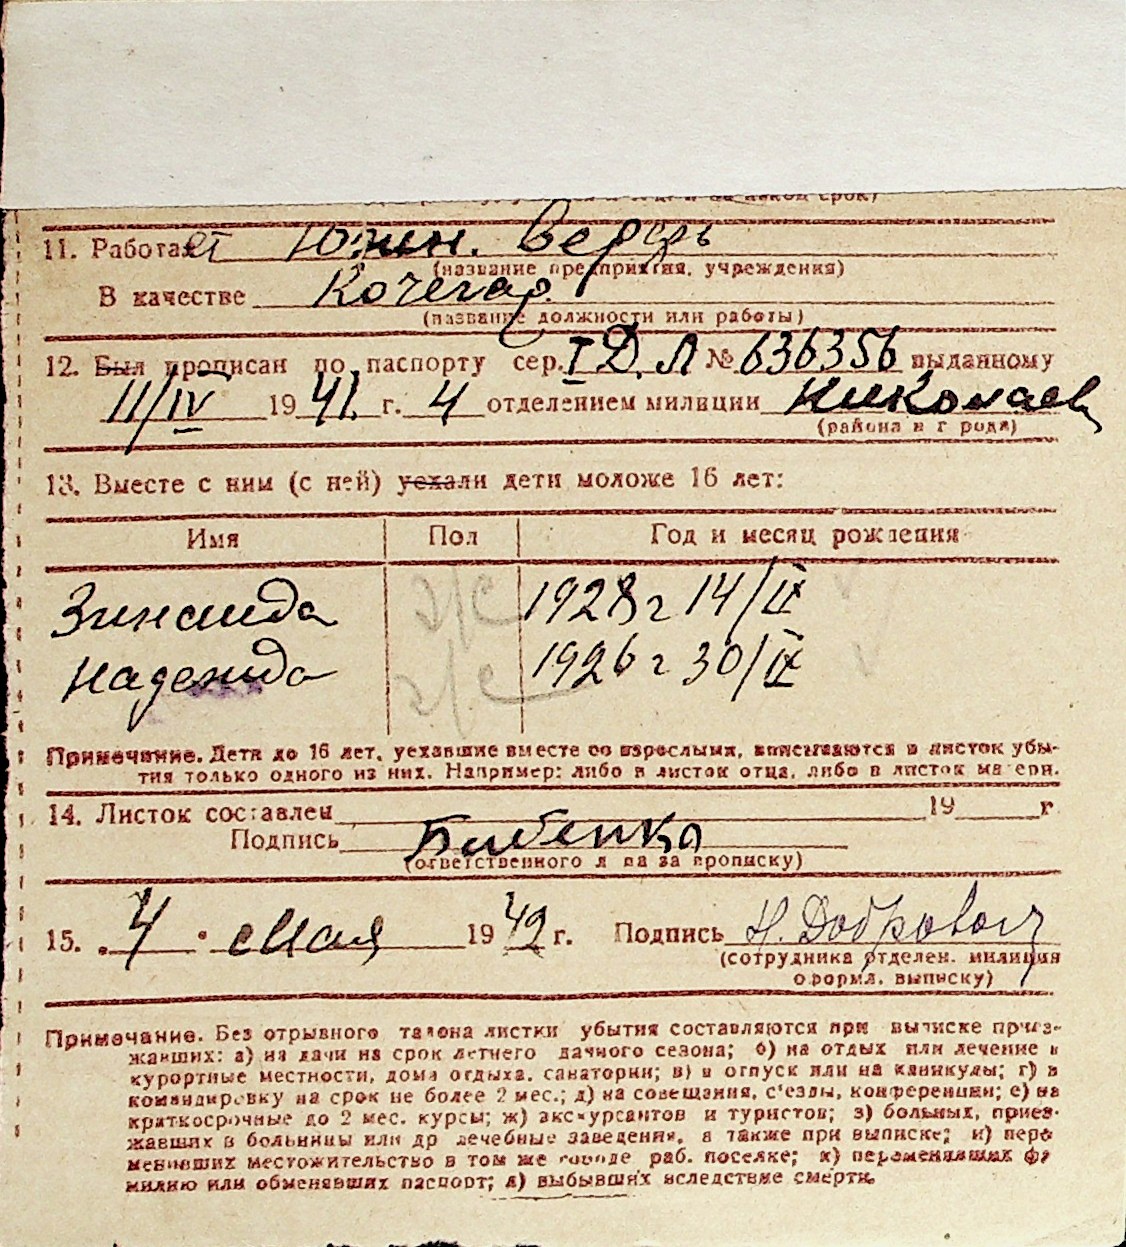 11. Работает Южин. Верфь
(название предприятия, учреждения)
В качестве Кочегар.
(название должности или работы)
12. Был прописан по паспорту сер. I Д. Л № 636356 выданному
11/IV 1941. г. 4 отделением милиции Николаев
(района и города)
13. Вместе с ним (с ней) уехали дети моложе 16 лет:
Имя Пол Год и месяц рождения
Зинаида 1928 г 14/IX
Надежда 1926 г 30/IX
Примечание. Дети до 16 лет, уехавшие вместе со взрослыми, вписываются в листок убы-
тия только одного из них. Например: либо в листок отца, либо в листок матери.
14. Листок составлен 19 г
Подпись Бабенко
(ответственного лица за прописку)
15. 4. мая 1942 г. Подпись Н. Добровол
(сотрудника отделен. милиции
оформл. выписку)
Примечание. Без отрывного талона листки убытия составляются при выписке приез-
жавших: а) на дачи на срок летнего дачного сезона; б) на отдых или лечение в
курортные местности, дома отдыха, санатории; в) в отпуск или на каникулы; г) в
командировку на срок не более 2 мес.; д) на совещания, с'езды, конференции; е) на
краткосрочные до 2 мес. курсы; ж) экскурсантов и туристов; з) больных, приез-
жавших в больницы или др лечебные заведения, а также при выписке; и) пере
менивших местожительство в том же городе раб. поселке; к) переменивших фа
милию или обменявших паспорт; л) выбывших вследствие смерти.